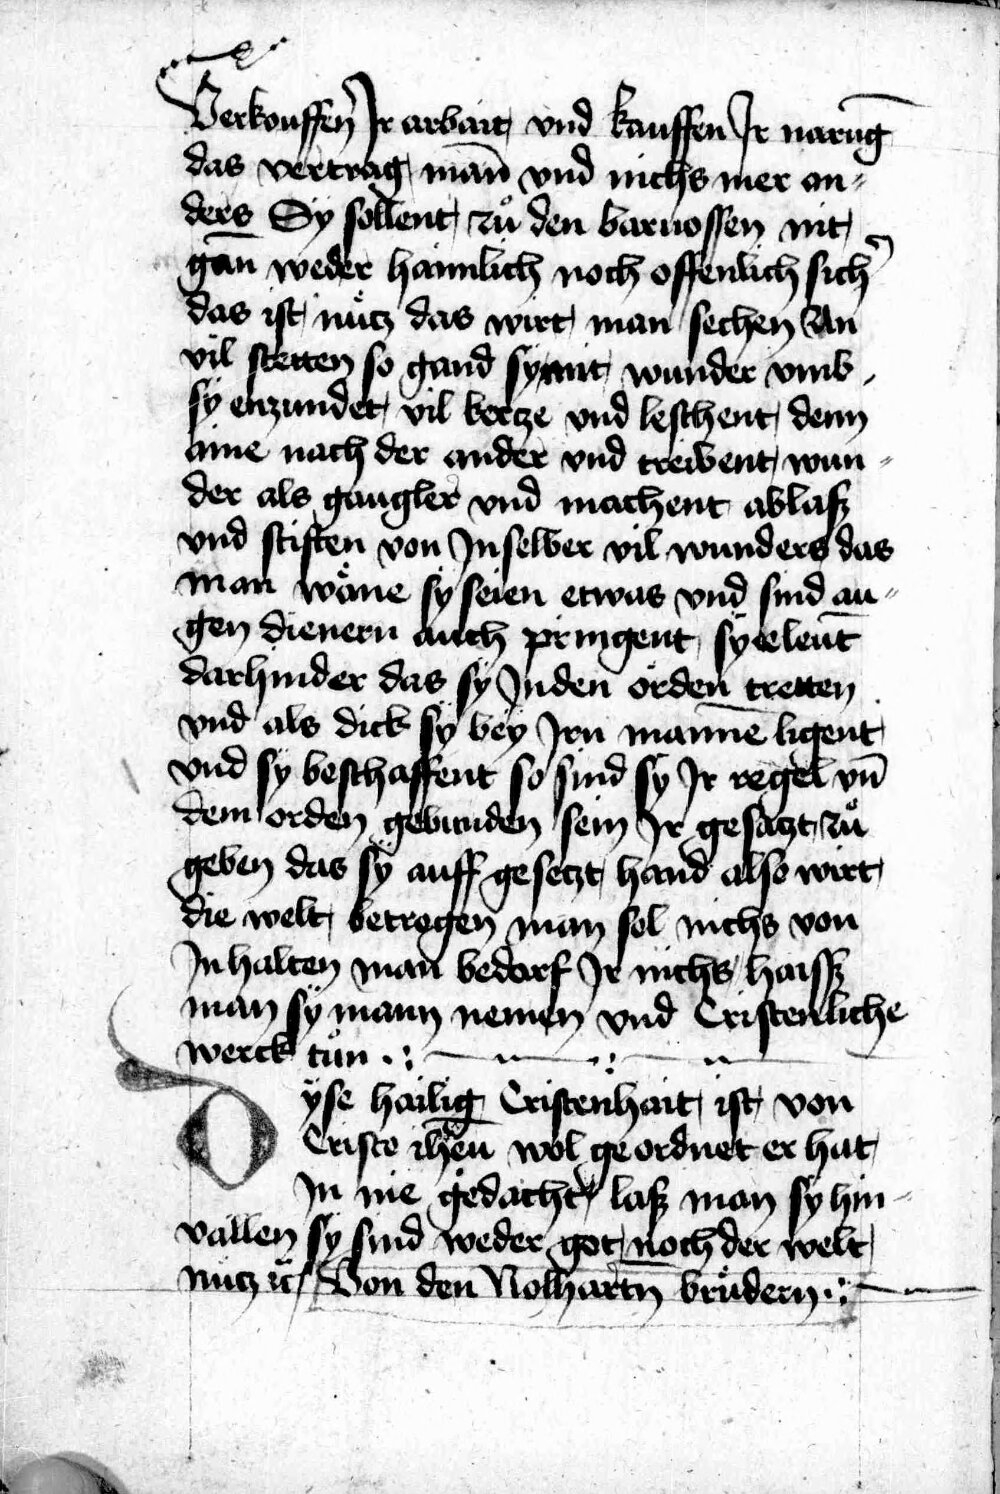 Verkouffen̄ Jr arbait vnd kauffen Jr narūg
das vertrag man̄ vnd nichs mer an-
ders Sy sollent zů den baruossen nit
gan weder haimlich noch offenlich sich͛
das ist nücz das wirt man sechen An
vil stetten so gand sy mit wunder vmb
sy enzundet vil kercze vnd leschent denn
aine nach der ander vnd treibent wun-
der als gaugler vnd machent ablasz
vnd stiften von Jn selber vil wunders das
man wäne sy seien etwas vnd sind au-
gen dienern auch pringent sy eeleut
darhinder das sy Jn den orden tretten
vnd als dick sy bey Jrn manne ligent
vnd sy beschaffent so sind sy Jr regel vn̄
dem orden gebunden sein Jr gesaczt zů
geben das sy auff gesetzt hand also wirt
die welt betrogen man sol nichs von
Jn halten man bedarf Jr nichs haissz
man sy mann nemen vnd Cristenliche
werck tůn
Dyse hailig Cristenhait ist von
Cristo ihēu wol geordnet er hat
Jn nie gedacht lasz man sy hin-
vallen sy sind weder got noch der welt
nücz ꝛc Von den Nolhartn̄ brüdern